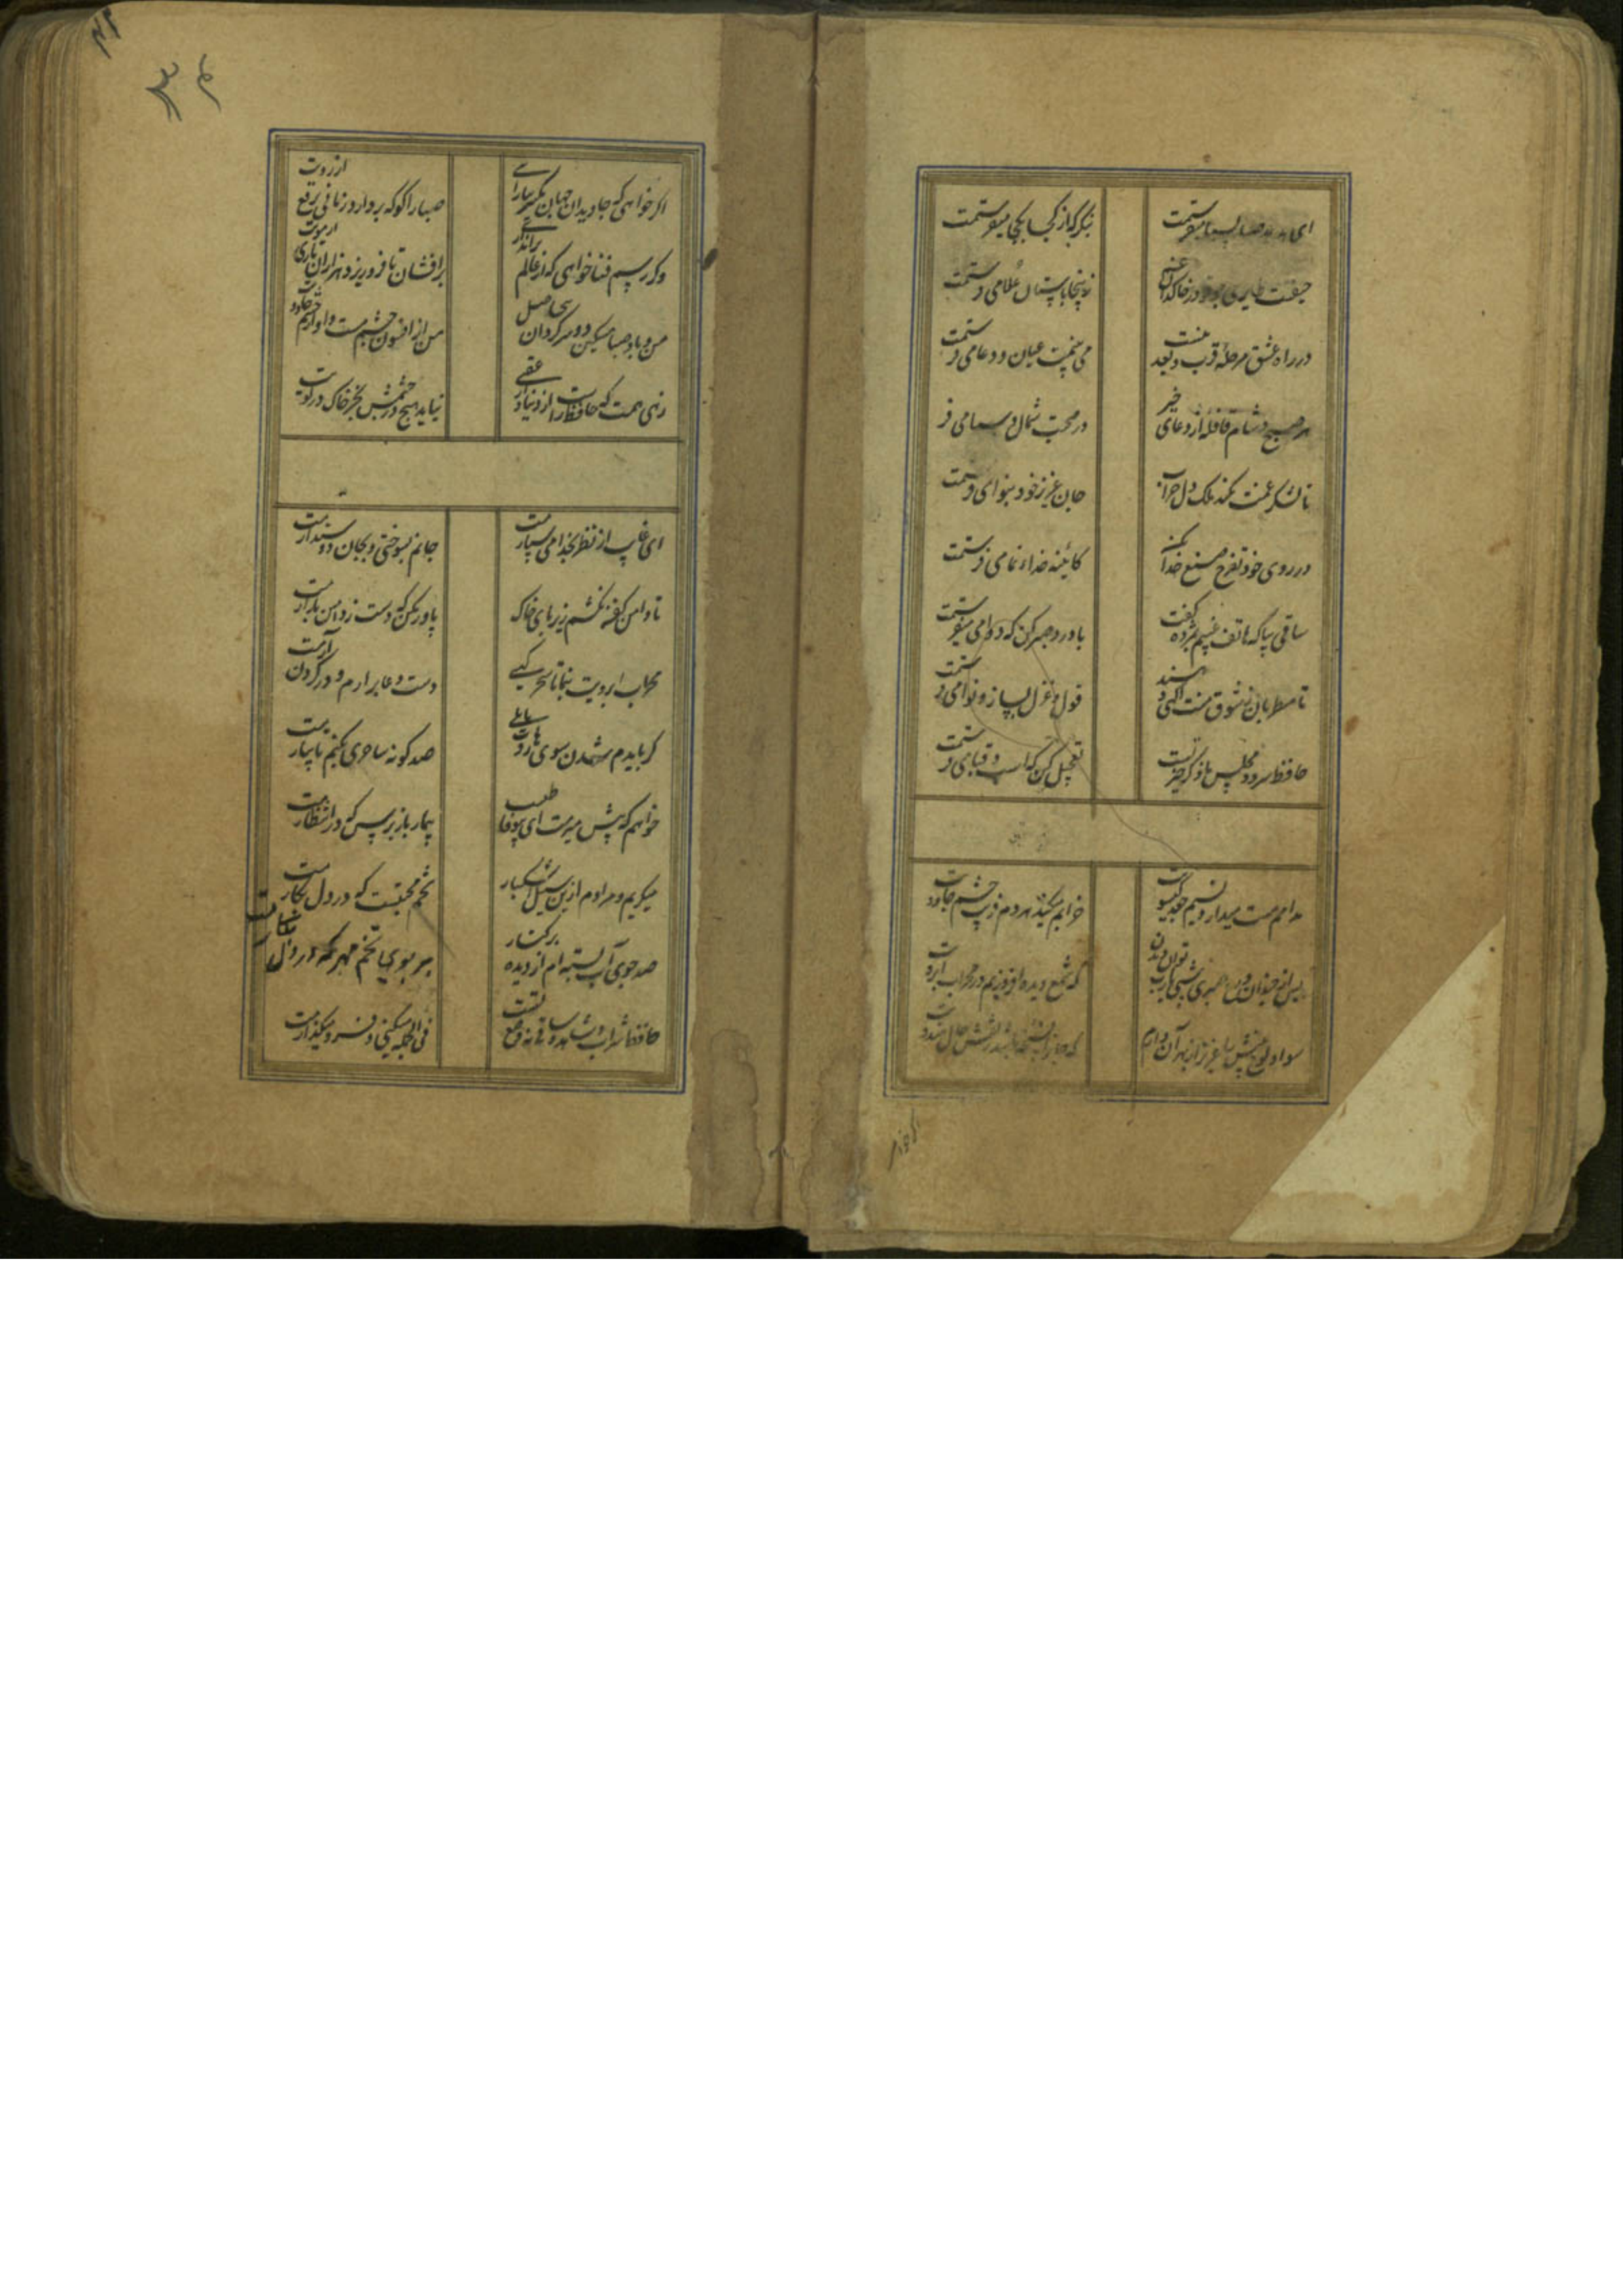 ای هدهد صبا بسبا میفرستمت
بنگر که از کجا بکجا میفرستمت
حیفست طایری چو تو در خاکدان غم
زینجا باستان علا می فرستمت
در راه عشق مرحلهٔ قرب و بعد نیست
می بینمت عیان و دعا می فرستمت
هر صبح و شام قافلهٔ از دعای خیر
در صحبت شمال و صبا می فر
تا لشکر غمت نکند ملک دل خراب
جان عزیز خود بنوا می فرستمت
در روی خود تفرج صنع خدا بکن
کائینه خدای نما می فرستمت
ساقی بیا که هاتف غیبم بمژده گفت
با درد صبر کن که دوا می فرستمت
تا مطربان ز شوق منت آگهی دهند
قول و غزل بساز و نوا می فرستمت
حافظ سرود مجلس ما ذکر خیر تست
تعجیل کن که اسب و قبا می فرستمت
مدامم مست میدارد نسیم جعد گیسویت
خرابم میکند هر دم فریب چشم جادویت
پس از چندان صبوری شبی یارب توان دیدن
که شمع دیده افروزیم در محراب ابرویت
سواد لوح بینش را عزیز از بهر آن دارم
که جانرا نسخه باشد ز نقش خال هندویت
اگر خواهی
اگر خواهی که جاویدان جهان یکسر بیارایی
صبا را گو که بردارد زمانی برقع از رویت
وگر رسم فنا خواهی که از عالم براندازی
برافشان تا فرو ریزد هزاران جان ز هر مویت
من و باد صبا مسکین دو سرگردان بی حاصل
من از افسون چشمت مست و او از بوی گیسویت
زهی همت که حافظ راست از دنیا و از عقبی
نیاید هیچ در چشمش بجز خاک در کویت
ای غایب از نظر بخدا می سپارمت
جانم بسوختی و بجان دوست دارمت
تا دامن کفن نکشم زیر پای خاک
باور مکن که دست ز دامن بدارمت
محراب ابرویت بنما تا سحرگهی
دست دعا برارم و در گردن آرمت
گر بایدم شدن سوی هاروت بابلی
صد گونه ساحری بکنم تا بیارمت
خواهم که پیش میرمت ای بیوفا طبیب
بیمار باز پرس که در انتظارمت
میگریم و مرادم ازین سیل اشکبار
تخم محبتست که در دل بکارمت
صد جوی آب بسته ام از دیده بر کنار
بر بوی تخم مهر که در دل
حافظ شراب و شاهد و ساقی نه وضع تست
فی الجمله میکنی و فرو میگذارمت